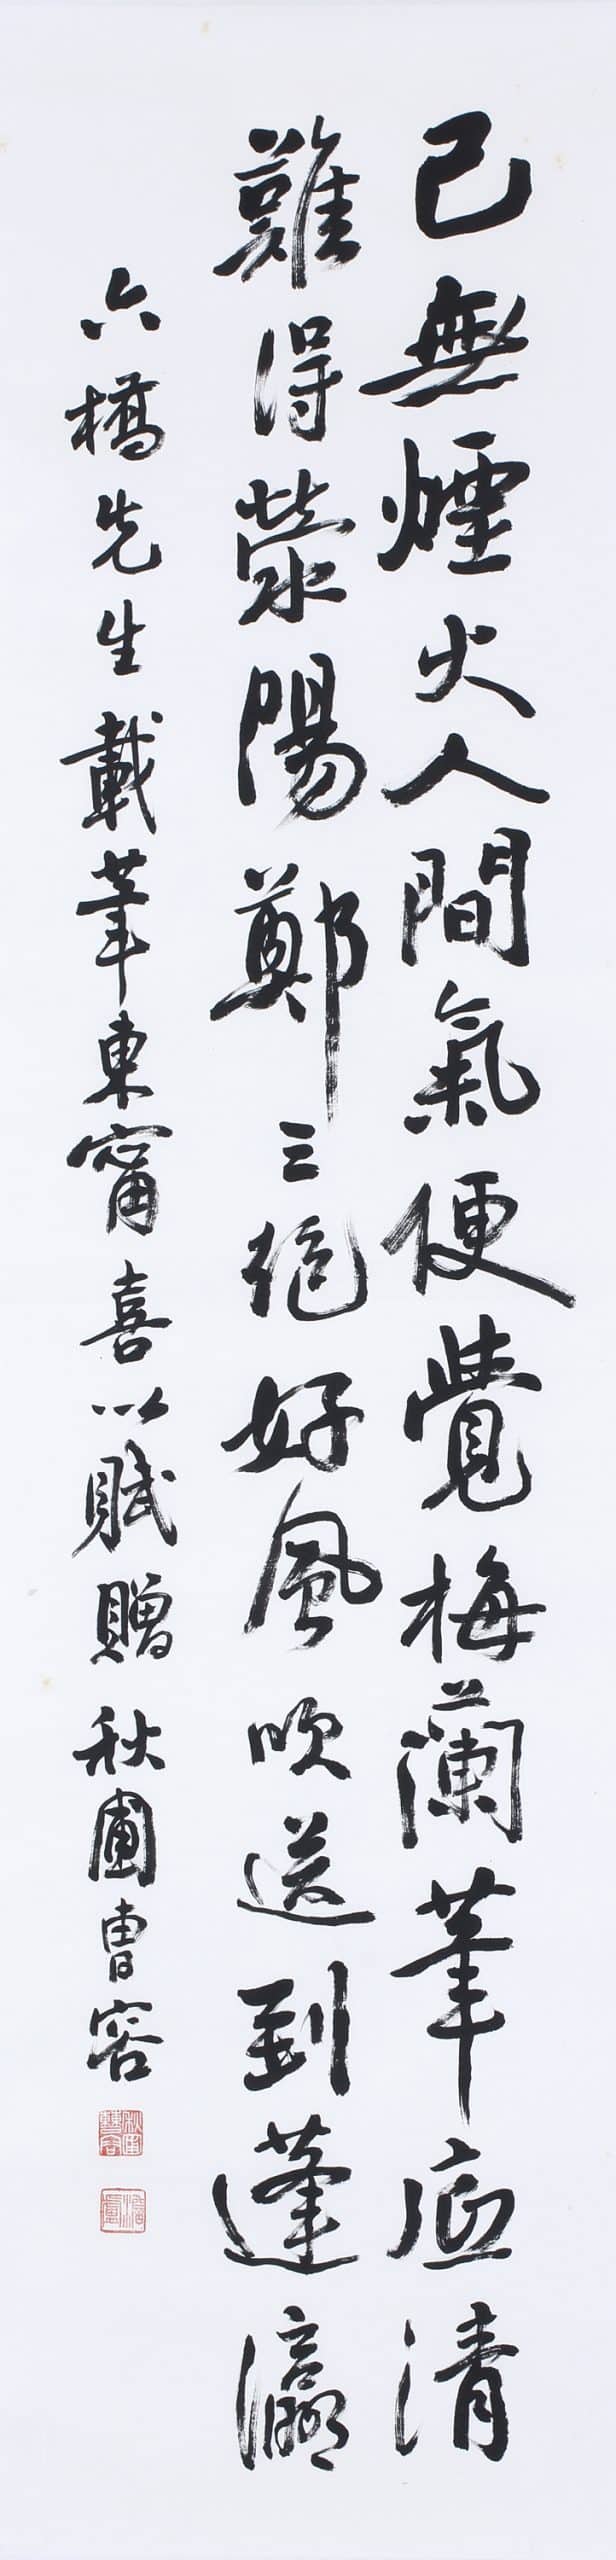 已無煙火人間氣便覺梅蘭筆底清
難得滎陽鄭三絕好風吹送到蓬瀛
六橋先生載筆東甯喜以賦贈 秋圃曹容